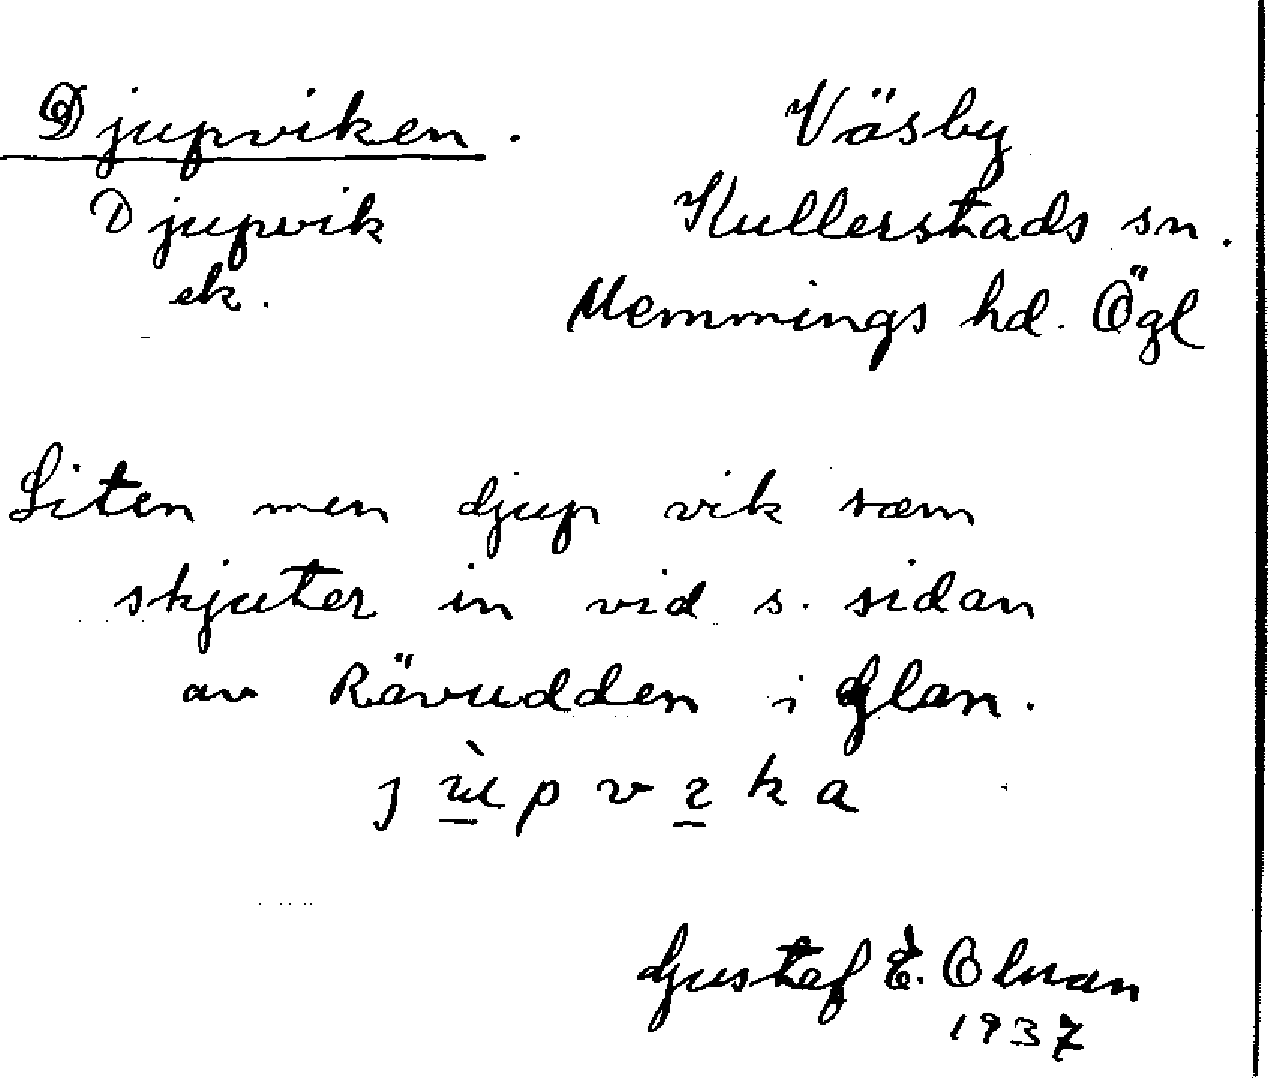 Djupviken.
Djupvik
ek.
Väsby
Kullerstads sn.
Memmings hd. Ögl
Liten men djup vik som
skjuter in vid s. sidan
av Rävudden i Glan.
Gustaf E.
1937